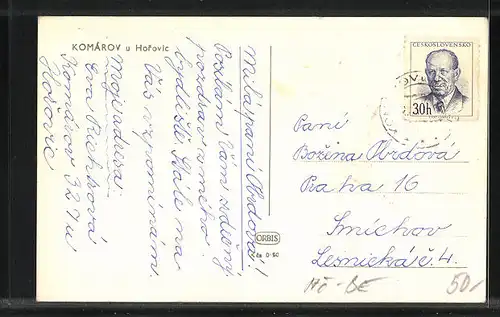 KOMÁROV u Hořovic
Milá paní Obrdová!
Posílám Vám srdečný
pozdrav z mého
bydliště. Stále na
Vás vzpomínám
Moje adresa
Eva Richtrová
Komárov 327 u
Hořovic
ČESKOSLOVENSKO
30h
Paní
Božina Obrdová
Praha 16
Smíchov
Lesnická č. 4.
ORBIS
HČ-BE
50,-